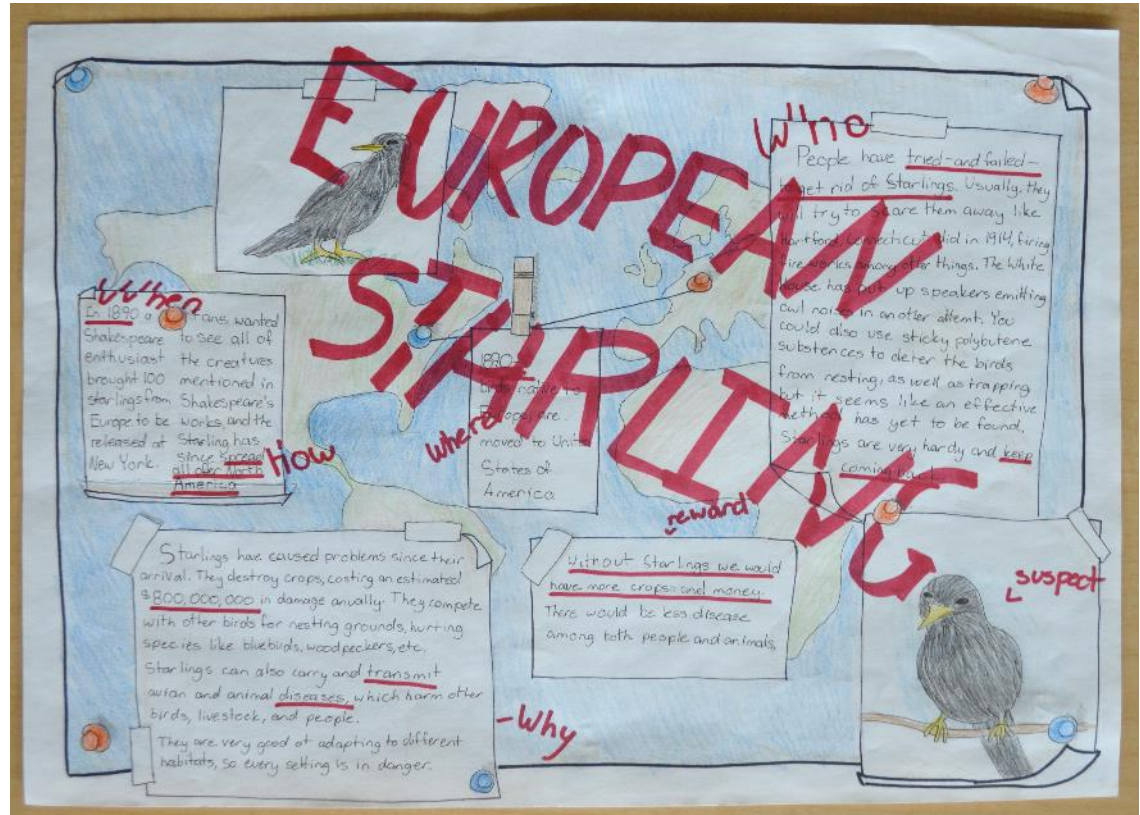 EUROPEAN
STARLING
When
In 1890 a
Shakespeare
enthusiast
brought 100
starlings from
Europe to be
released at
New York.
fans wanted
to see all of
the creatures
mentioned in
Shakespeare's
works, and the
Starling has
since spread
all over North
America
How
where
1890
birds native to
Europe are
moved to
States of
America
Who
People have tried-and failed-
to get rid of Starlings. Usually, they
will try to scare them away like
Hartford, Connecticut did in 1914, firing
fire works among other things. The White
House has put up speakers emitting
owl noise in another attemt. You
could also use sticky polybutene
substences to deter the birds
from nesting, as well as trapping
but it seems like an effective
method has yet to be found.
Starlings are very hardy and keep
coming back.
Starlings have caused problems since their
arrival. They destroy crops, costing an estimated
$800,000,000 in damage anually. They compete
with other birds for nesting grounds, hurting
species like bluebirds, woodpeckers, etc.
Starlings can also carry and transmit
avian and animal diseases, which harm other
birds, livestock, and people.
They are very good at adapting to different
habitats, so every setting is in danger.
-Why
reward
Without Starlings we would
have more crops and money.
There would be less disease
among both people and animals
suspect